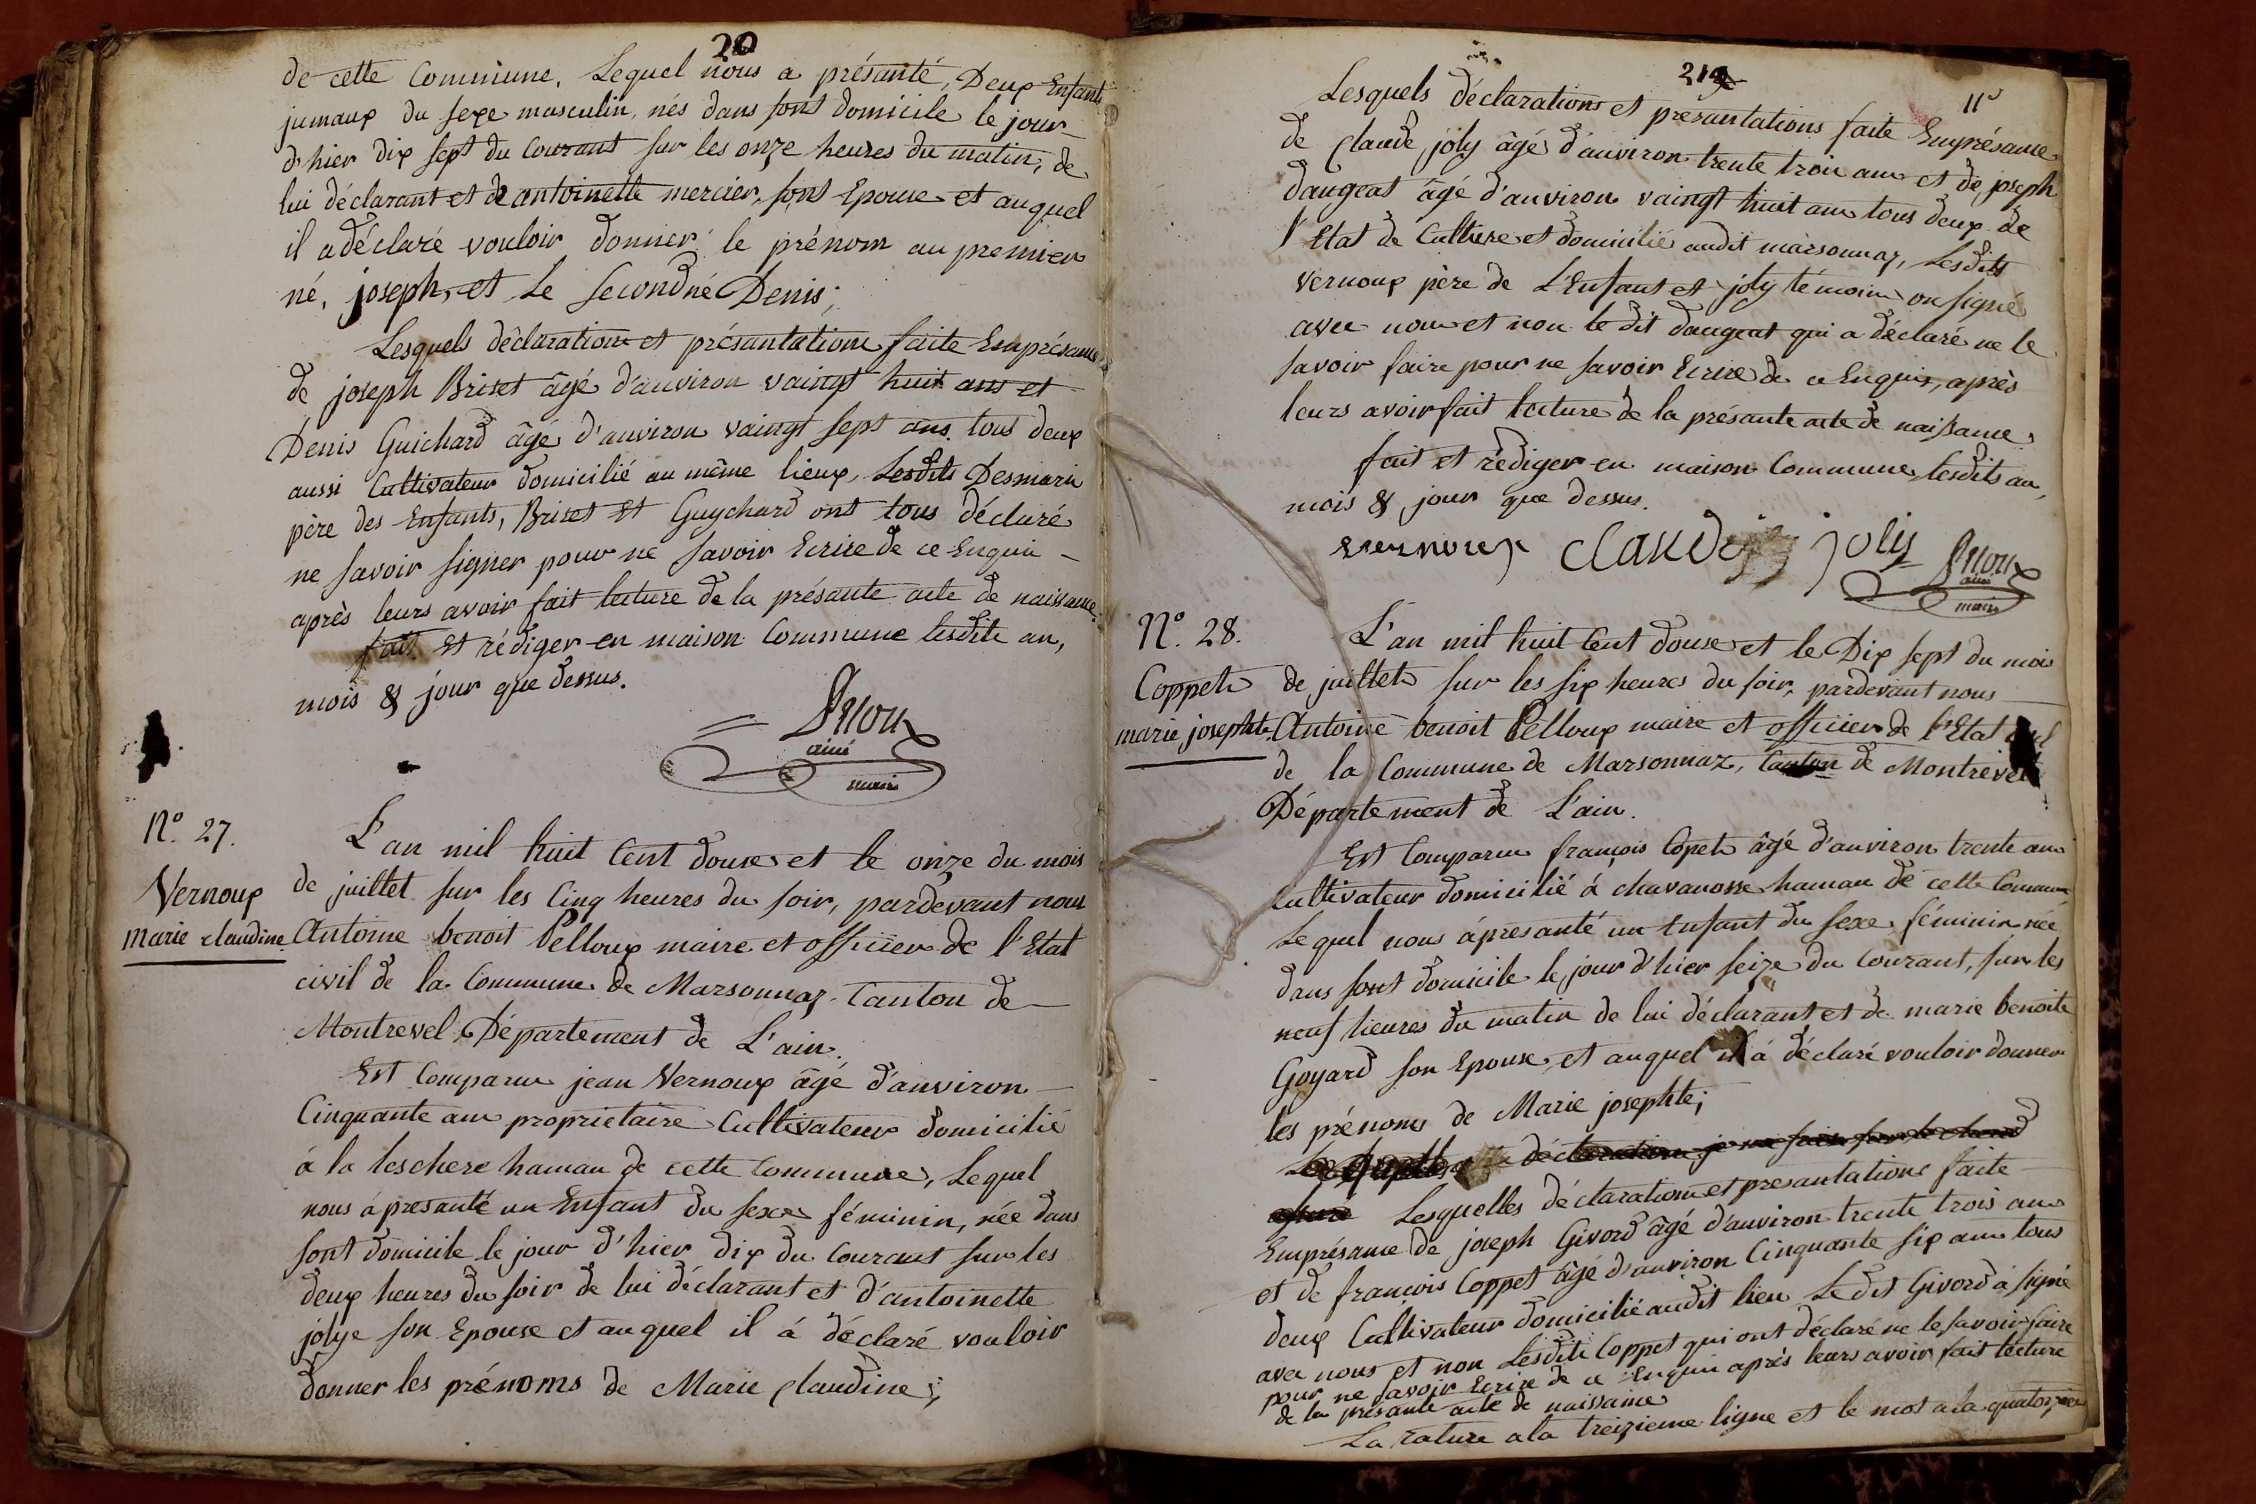 20
de cette Commune, Lequel nous a présanté, Deux Enfants
jumaux du sexe masculin, nés dans sont domicile le jour
d'hier dix sept du Courant sur les onze heures du matin, de
lui déclarant et de antoinette mercier, sont Epouse et auquel
il a déclaré vouloir donner le prénom au premier
né, joseph, et Le Second né Denis;
Lesquels déclaration et présantations faite Enprésance
de joseph Briset âgé d'anviron vaingt huit ans et
Denis Guichard âgé d'anviron vaingt sept ans, tous deux
aussi Cultivateur domicilié au même lieux, Lesdits Desmaris
père des Enfants, Briset Et Guychard ont tous déclaré
ne savoir signer pour ne savoir Ecrire de ce Enquis
après leurs avoir fait lecture de la présante acte de naissance
fait Et rédiger en maison Commune lesdits an,
mois & jour que dessus.
ainé
maire
N.º 27.
Vernoux
marie claudine
L'an mil huit Cent douse et le onze du mois
de juillet sur les Cinq heures du soir, pardevant nous
Antoine benoit Pelloux maire et officier de l'Etat
civil de la Commune de Marsonnaz Canton de
Montrevel Département de L'ain.
Est Comparu jean Vernoux âgé d'anviron
Cinquante ans propriétaire Cultivateur domicilié
à la leschere hamau de cette Commune, Lequel
nous á presanté un Enfant du sexe féminin, née dans
sont domicile le jour d'hier dix du Courant sur les
deux heures du soir de lui déclarant et d'antoinette
jolye son Epouse et auquel il á déclaré vouloir
donner les prénoms de Marie Claudine;
21
11e
Lesquels déclarations et presantations faite Enprésance
de Claude joly âgé d'anviron trente trois ans et de joseph
daugeat âgé d'anviron vaingt huit ans tous deux de
l'Etat de Culture et domicilié audit marsonnaz, Lesdits
Vernoux père de L'Enfant et joly témoins on signé
avec nous et non le dit daugeat qui a déclaré ne le
savoir faire pour ne savoir Ecrire de ce Enquis, après
leurs avoir fait lecture de la présante acte de naissance.
fait et rédiger en maison Commune lesdits an,
mois & jour que dessus.
vernoux claude joly
ainé
maire
N.º 28.
Coppet
marie josephte
L'an mil huit Cent douse et le Dix sept du mois
de juillet sur les six heures du soir, pardevant nous
Antoine benoit Pelloux maire et officier de l'Etat civil
de la Commune de Marsonnaz, Canton de Montrevel
Département de L'ain.
Est Comparu françois Copet âgé d'anviron trente ans
Cultivateur domicilié á chavanosse hamau de cette Commune
Lequel nous á presanté un Enfant du sexe féminin née
dans sont domicile le jour d'hier seize du Courant, sur les
neuf heures du matin de lui déclarant et de marie benoite
Goyard son Epouse, et auquel il á déclaré vouloir donner
les prénoms de Marie josephte;
Lesquelles déclarations et presantations faite
Enprésance de joseph Givord âgé d'anviron trente trois ans
et de françois Coppet âgé d'anviron Cinquante six ans tous
deux Cultivateur domicilié audit lieu Le dit Givord á signé
avec nous et non Lesdits Coppet qui ont déclaré ne le savoir faire
pour ne savoir Ecrire de ce Enquis après leurs avoir fait lecture
de la présante acte de naissance
La rature a la treizieme ligne et le mot a la quatorzieme